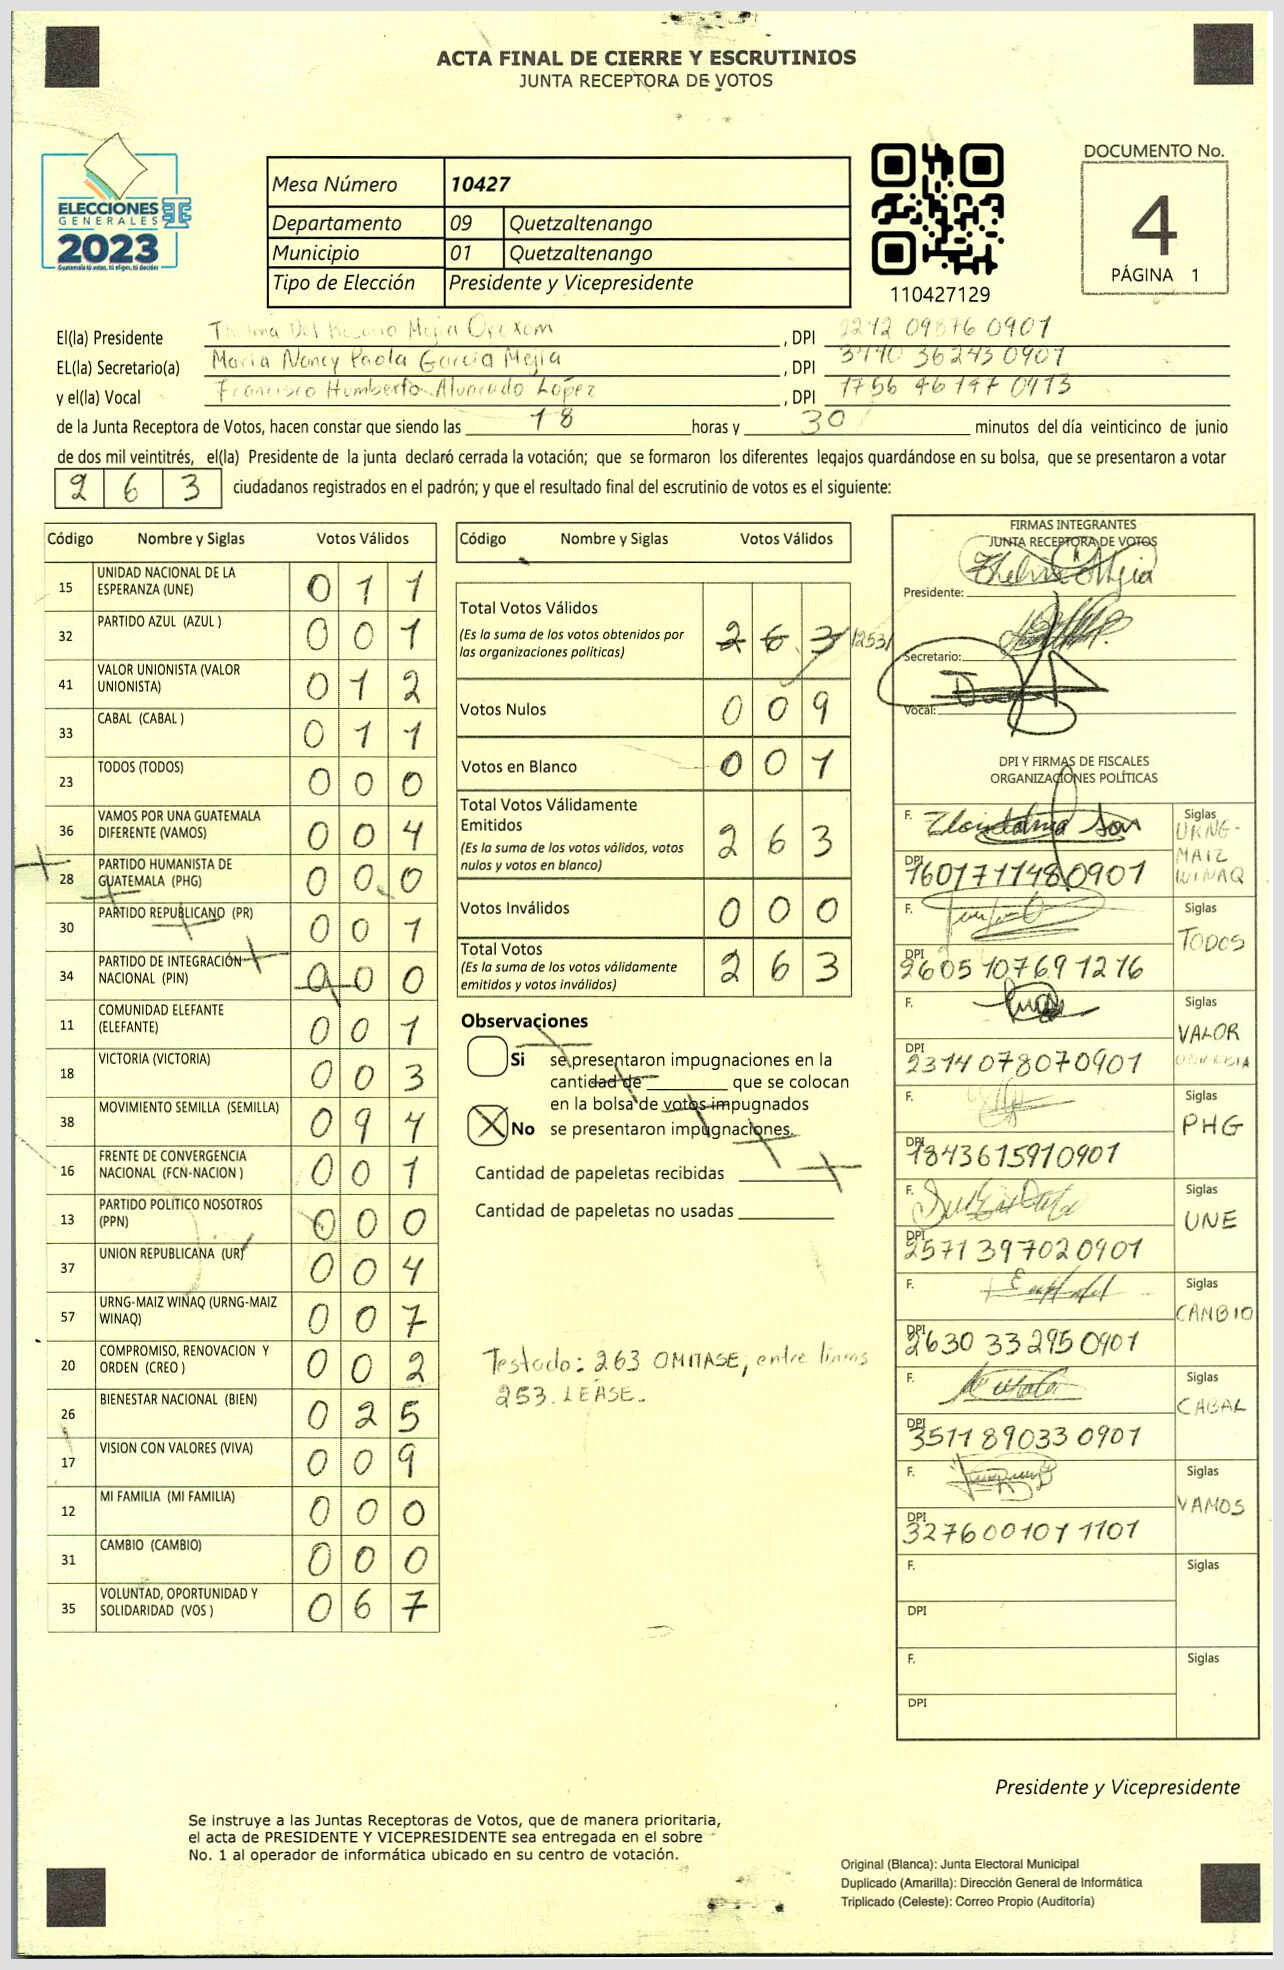 ACTA FINAL DE CIERRE Y ESCRUTINIOS
JUNTA RECEPTORA DE VOTOS
ELECCIONES
GENERALES
2023
Guatemala tú votas, tú eliges, tú decides
Mesa Número 10427
Departamento 09 Quetzaltenango
Municipio 01 Quetzaltenango
Tipo de Elección Presidente y Vicepresidente
110427129
DOCUMENTO No.
4
PÁGINA 1
El(la) Presidente Thelma Del Rosario Mejia Orexom, DPI 09876 0901
EL(la) Secretario(a) Maria Nancy Paola Garcia Mejia, DPI 36243 0901
y el(la) Vocal Francisco Humberto Alvarado López, DPI 1756 46147 0913
de la Junta Receptora de Votos, hacen constar que siendo las 18 horas y 30 minutos del día veinticinco de junio
de dos mil veintitrés, el(la) Presidente de la junta declaró cerrada la votación; que se formaron los diferentes legajos guardándose en su bolsa, que se presentaron a votar
263 ciudadanos registrados en el padrón; y que el resultado final del escrutinio de votos es el siguiente:
Código Nombre y Siglas Votos Válidos
15 UNIDAD NACIONAL DE LA ESPERANZA (UNE) 011
32 PARTIDO AZUL (AZUL ) 001
41 VALOR UNIONISTA (VALOR UNIONISTA) 012
33 CABAL (CABAL ) 011
23 TODOS (TODOS) 000
36 VAMOS POR UNA GUATEMALA DIFERENTE (VAMOS) 004
28 PARTIDO HUMANISTA DE GUATEMALA (PHG) 000
30 PARTIDO REPUBLICANO (PR) 001
34 PARTIDO DE INTEGRACIÓN NACIONAL (PIN) 000
11 COMUNIDAD ELEFANTE (ELEFANTE) 001
18 VICTORIA (VICTORIA) 003
38 MOVIMIENTO SEMILLA (SEMILLA) 094
16 FRENTE DE CONVERGENCIA NACIONAL (FCN-NACION ) 001
13 PARTIDO POLITICO NOSOTROS (PPN) 000
37 UNION REPUBLICANA (UR) 004
57 URNG-MAIZ WINAQ (URNG-MAIZ WINAQ) 007
20 COMPROMISO, RENOVACION Y ORDEN (CREO ) 002
26 BIENESTAR NACIONAL (BIEN) 025
17 VISION CON VALORES (VIVA) 009
12 MI FAMILIA (MI FAMILIA) 000
31 CAMBIO (CAMBIO) 000
35 VOLUNTAD, OPORTUNIDAD Y SOLIDARIDAD (VOS ) 067
Código Nombre y Siglas Votos Válidos
Total Votos Válidos 263 /253/
(Es la suma de los votos obtenidos por
las organizaciones políticas)
Votos Nulos 009
Votos en Blanco 001
Total Votos Válidamente
Emitidos 263
(Es la suma de los votos válidos, votos
nulos y votos en blanco)
Votos Inválidos 000
Total Votos 263
(Es la suma de los votos válidamente
emitidos y votos inválidos)
Observaciones
Si se presentaron impugnaciones en la
cantidad de ________ que se colocan
en la bolsa de votos impugnados
X No se presentaron impugnaciones.
Cantidad de papeletas recibidas
Cantidad de papeletas no usadas
Testado: 263 OMITASE, entre lineas
253. LEASE.
FIRMAS INTEGRANTES
JUNTA RECEPTORA DE VOTOS
Presidente: Thelma Mejia
Secretario:
Vocal:
DPI Y FIRMAS DE FISCALES
ORGANIZACIONES POLÍTICAS
F. Siglas URNG-MAIZ WINAQ
DPI 1601711480901
F. Siglas TODOS
DPI 2605107691216
F. Siglas VALOR UNIONISTA
DPI 2314078070901
F. Siglas PHG
DPI 1843615910901
F. Siglas UNE
DPI 2571397020901
F. Siglas CAMBIO
DPI 2630 33295 0901
F. Siglas CABAL
DPI 3511 89033 0901
F. Siglas VAMOS
DPI 3276001011101
F. Siglas
DPI
F. Siglas
DPI
Presidente y Vicepresidente
Se instruye a las Juntas Receptoras de Votos, que de manera prioritaria,
el acta de PRESIDENTE Y VICEPRESIDENTE sea entregada en el sobre
No. 1 al operador de informática ubicado en su centro de votación.
Original (Blanca): Junta Electoral Municipal
Duplicado (Amarilla): Dirección General de Informática
Triplicado (Celeste): Correo Propio (Auditoría)